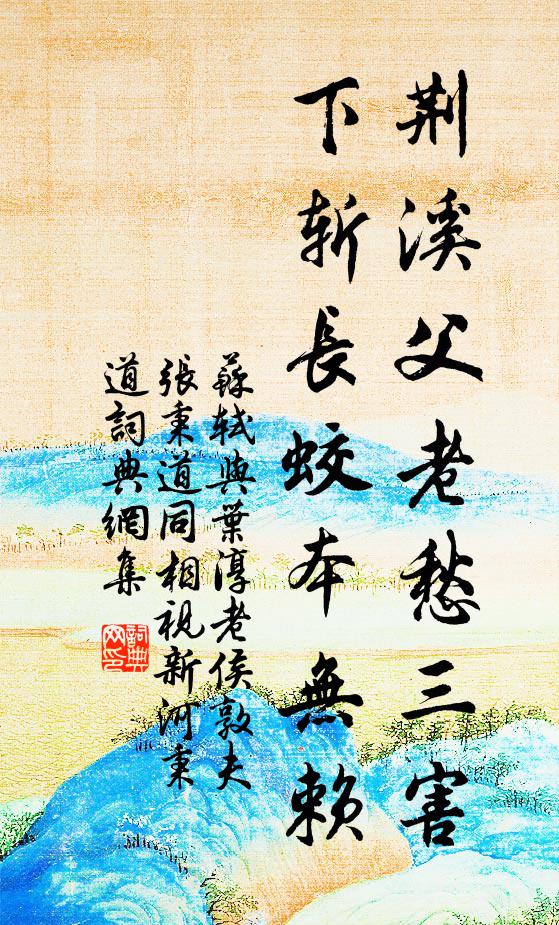 荆溪父老愁三害
下斬長蛟本無賴
蘇軾與葉淳老侯敦夫
張秉道同相視新河秉
道詞典網集
詞典
网印